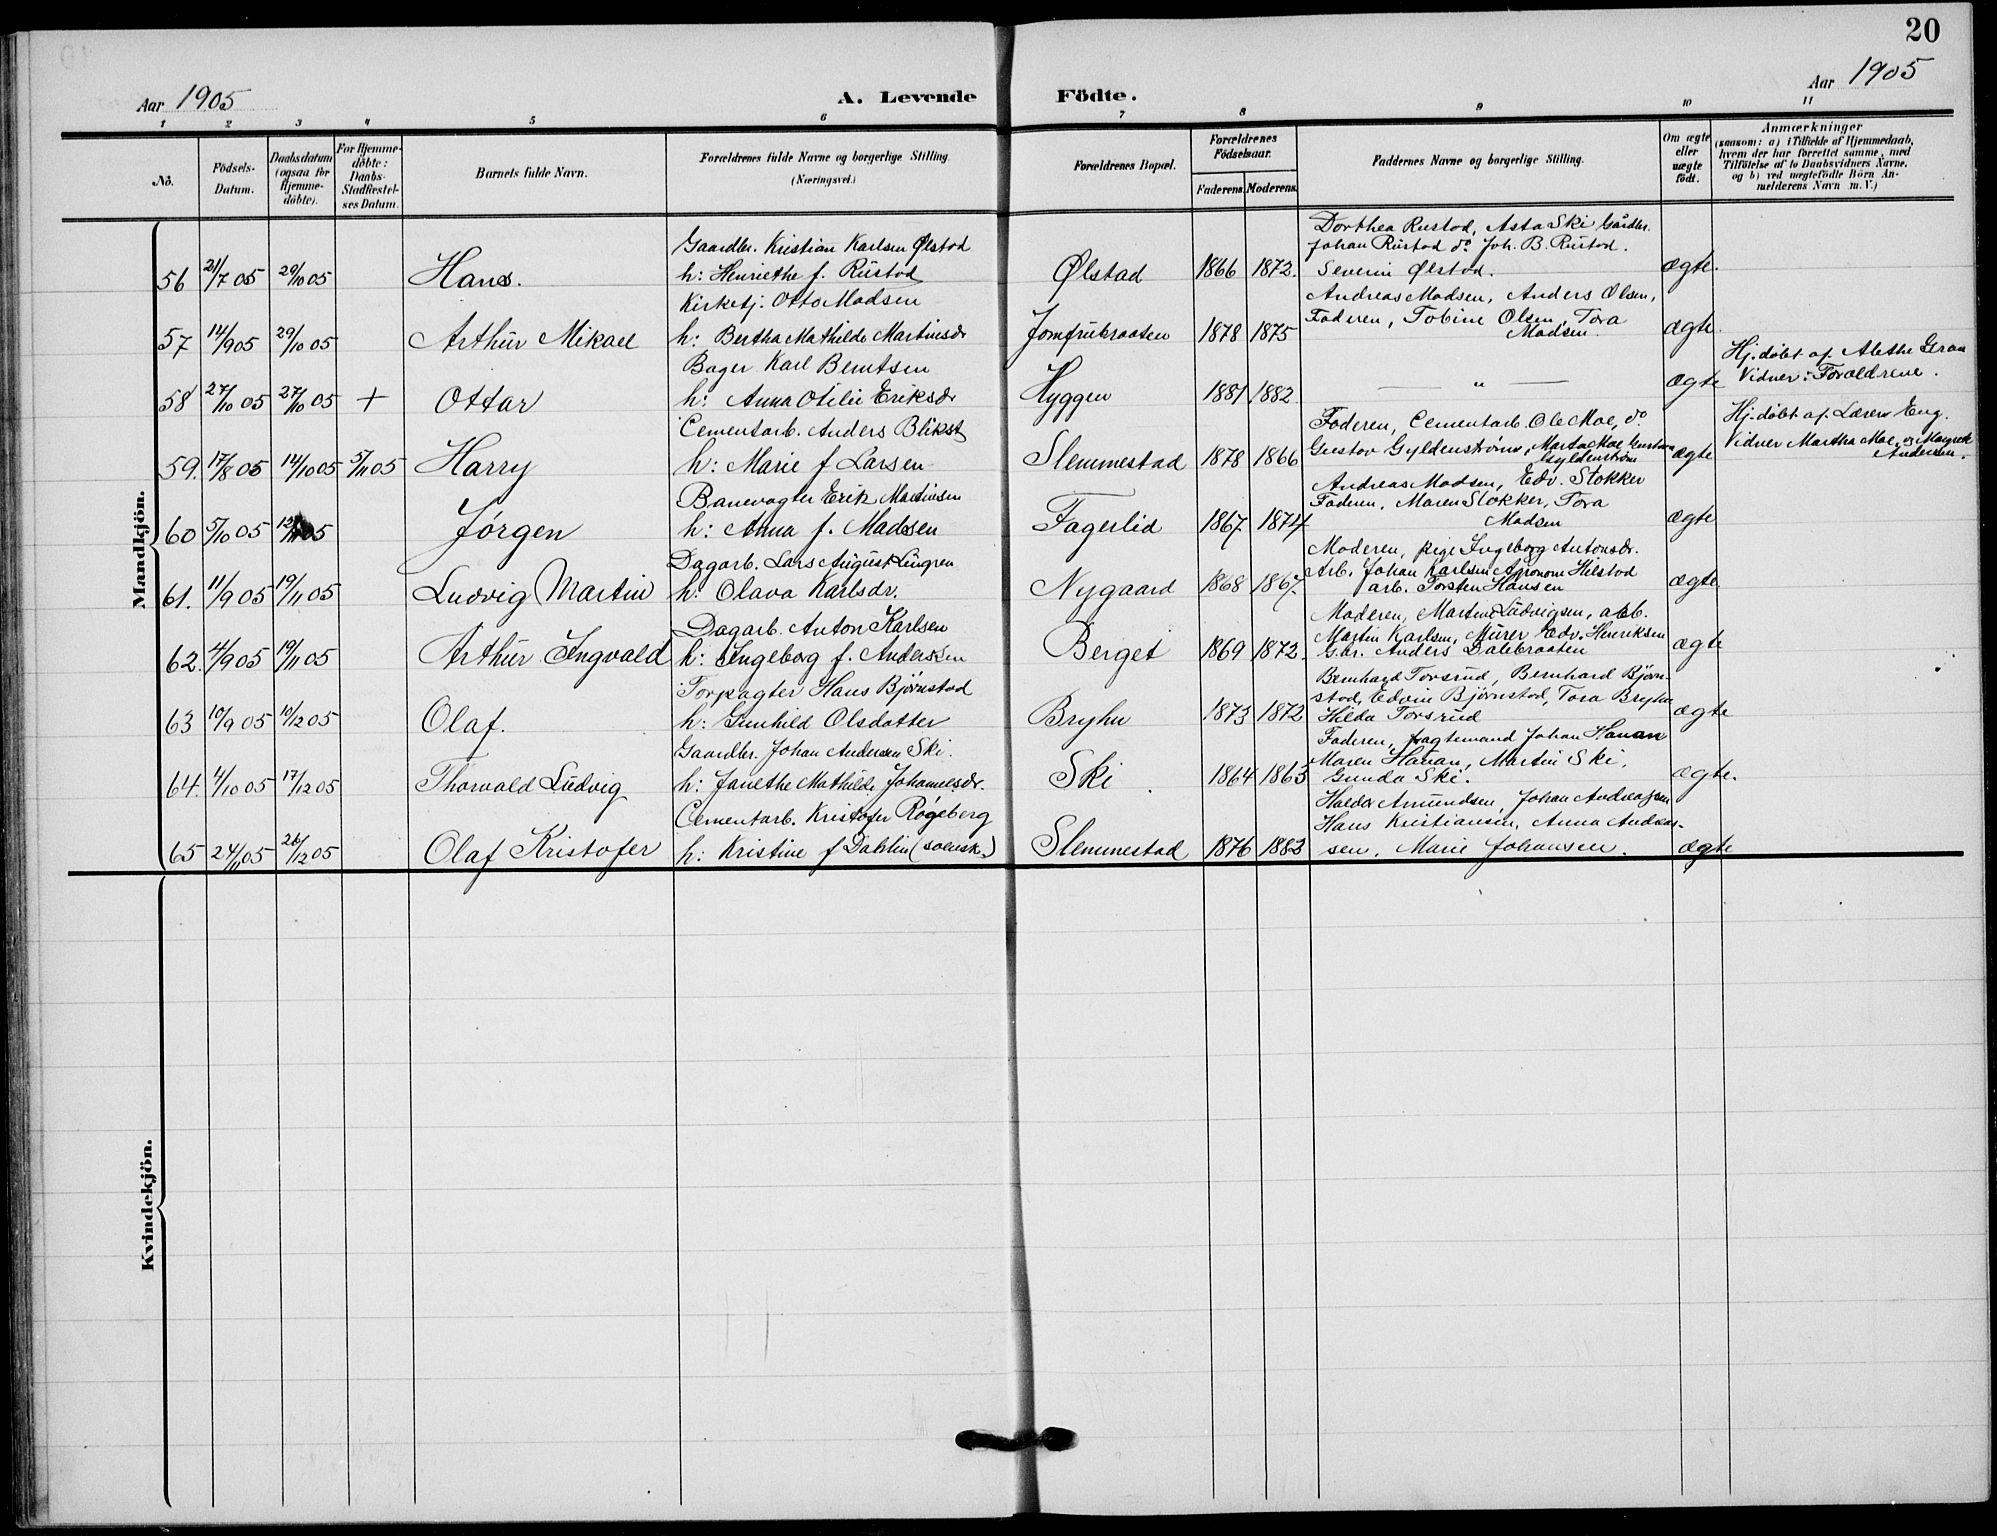 20
Aar 1905
A. Levende Födte.
Aar 1905
1 2 3 4 5 6 7 8 9 10 11
No.
Födsels-Datum.
Daabsdatum (ogsaa for Hjemme-döbte).
For Hjemme-döbte: Daabs-Stadfæstel-ses Datum.
Barnets fulde Navn.
Forældrenes fulde Navne og borgerlige Stilling.
(Næringsvei.)
Forældrenes Bopæl.
Forældrenes Födselsaar.
Faderens. Moderens.
Faddernes Navne og borgerlige Stilling.
Om ægte eller uægte födt.
Anmærkninger
(saasom: a) i Tilfælde af Hjemmedaab, hvem der har forrettet samme, med Tilföielse af to Daabsvidners Navne, og b) ved uægtefödte Börn An-melderens Navn m. V.)
Mandkjön.
56 21/7 05 29/10 05 Hans.
Gaardbr. Kristian Karlsen Ølstad
h: Henriethe f. Rustad
Ølstad 1866 1872.
Dorthea Rustad, Asta Ski Gårdbr.
Johan Rustad do Joh. B. Rustad.
Severin Ølstad.
ægte.
57 14/9 05 29/10 05 Arthur Mikael
Kirketj. Otto Madsen
h: Bertha Mathilde Martinsdr
Jomfrubraaten 1878 1875
Andreas Madsen, Anders Olsen,
Faderen, Tobine Olsen, Tora
Madsen
ægte.
58 27/10 05 27/10 05 + Ottar
Bager Karl Berntsen
h: Anna Otilie Eriksdr
Hyggen 1881 1882
— " —
ægte
Hj. døbt af Alethe Gran
Vidner: Forældrene.
59. 17/8 05 14/10 05 5/11 05 Harry
Cementarb. Anders Blikst
h: Marie f Larsen
Slemmestad 1878 1866
Faderen, Cementarb. Ole Moe, do
Gustav Gyldenstrøm, Marta Moe, Gustava
Gyldenstrøm
ægte
Hj. døbt af Lærer Eng.
Vidner Martha Moe, og Margrete
Andersen.
60 5/10 05 05 Jørgen
Banevogter Erik Martinsen
h: Anna f. Madsen
Fagerlid 1867. 1874
Andreas Madsen, Edv. Stokker
Faderen, Maren Stokker, Tora
Madsen
ægte
61. 11/9 05 19/11 05 Ludvig Martin
Dagarb. Lars August Lingren
h: Olava Karlsdr.
Nygaard 1868 1867.
Moderen, pige Ingeborg Antonsdr.
Arb. Johan Karlsen Agronom Hilstad
arb. Torsten Hansen
ægte
62. 4/9 05 19/11 05 Arthur Ingvald
Dagarb. Anton Karlsen
h: Ingeborg f. Andersen
Berget 1869 1872.
Moderen, Martin Ludvigsen, arb.
Martin Karlsen, Murer Edv. Henriksen
Gbr. Anders Dalebraaten
ægte
63 10/9 05 10/12 05 Olaf.
Forpagter Hans Bjørnstad
h: Gunhild Olsdatter
Bryhn 1873 1872
Bernhard Torsrud, Bernhard Bjørn-
stad, Edvin Bjørnstad, Tora Bryhn
Hilda Torsrud
ægte
64. 4/10 05 17/12 05 Thorvald Ludvig
Gaardbr. Johan Andersen Ski.
h: Janethe Mathilde Johannesdr.
Ski 1864 1863
Faderen, fragtemand Johan Hanan
Maren Hanan, Martin Ski,
Gunda Ski.
ægte.
65 24/11 05 26/12 05 Olaf Kristofer
Cementarb. Kristofer Røgeberg
h: Kristine f Dahlin (svensk)
Slemmestad 1876 1883
Haldor Amundsen, Johan Andreasen
Hans Kristiansen, Anna Andreas-
sen, Marie Johansen.
ægte
Kvindekjön.